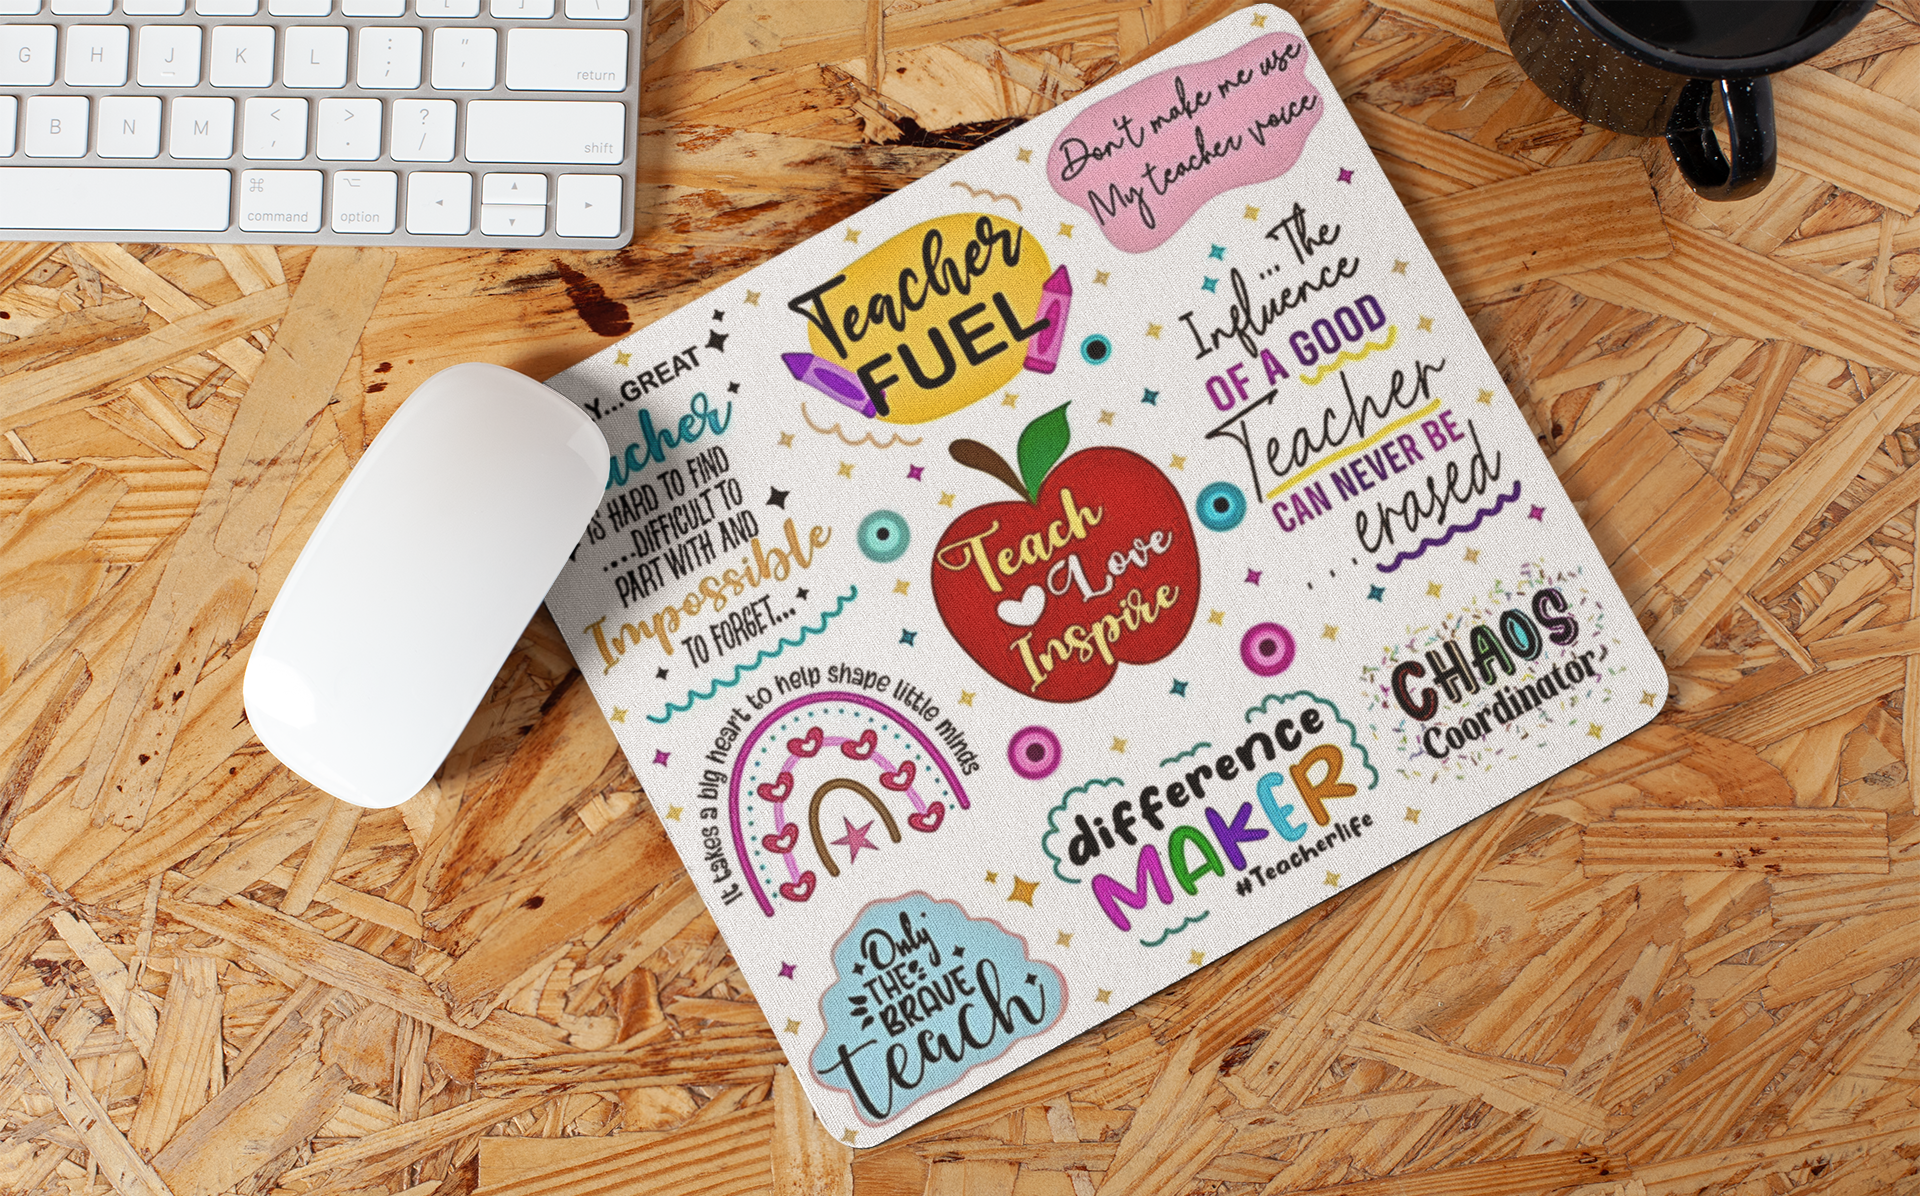 G H J K L : ; " '
return
B N M < , > . ? /
shift
⌘
command
⌥
option
Don't make me use
My teacher voice
Teacher
FUEL
Infl...The
uence
OF A GOOD
Teacher
CAN NEVER BE
...erased
Y...GREAT
acher
IS HARD TO FIND
....DIFFICULT TO
PART WITH AND
Impossible
TO FORGET...
Teach
Love
Inspire
It takes a big heart to help shape little minds
difference
MAKER
#Teacherlife
CHAOS
Coordinator
Only
THE
BRAVE
teach